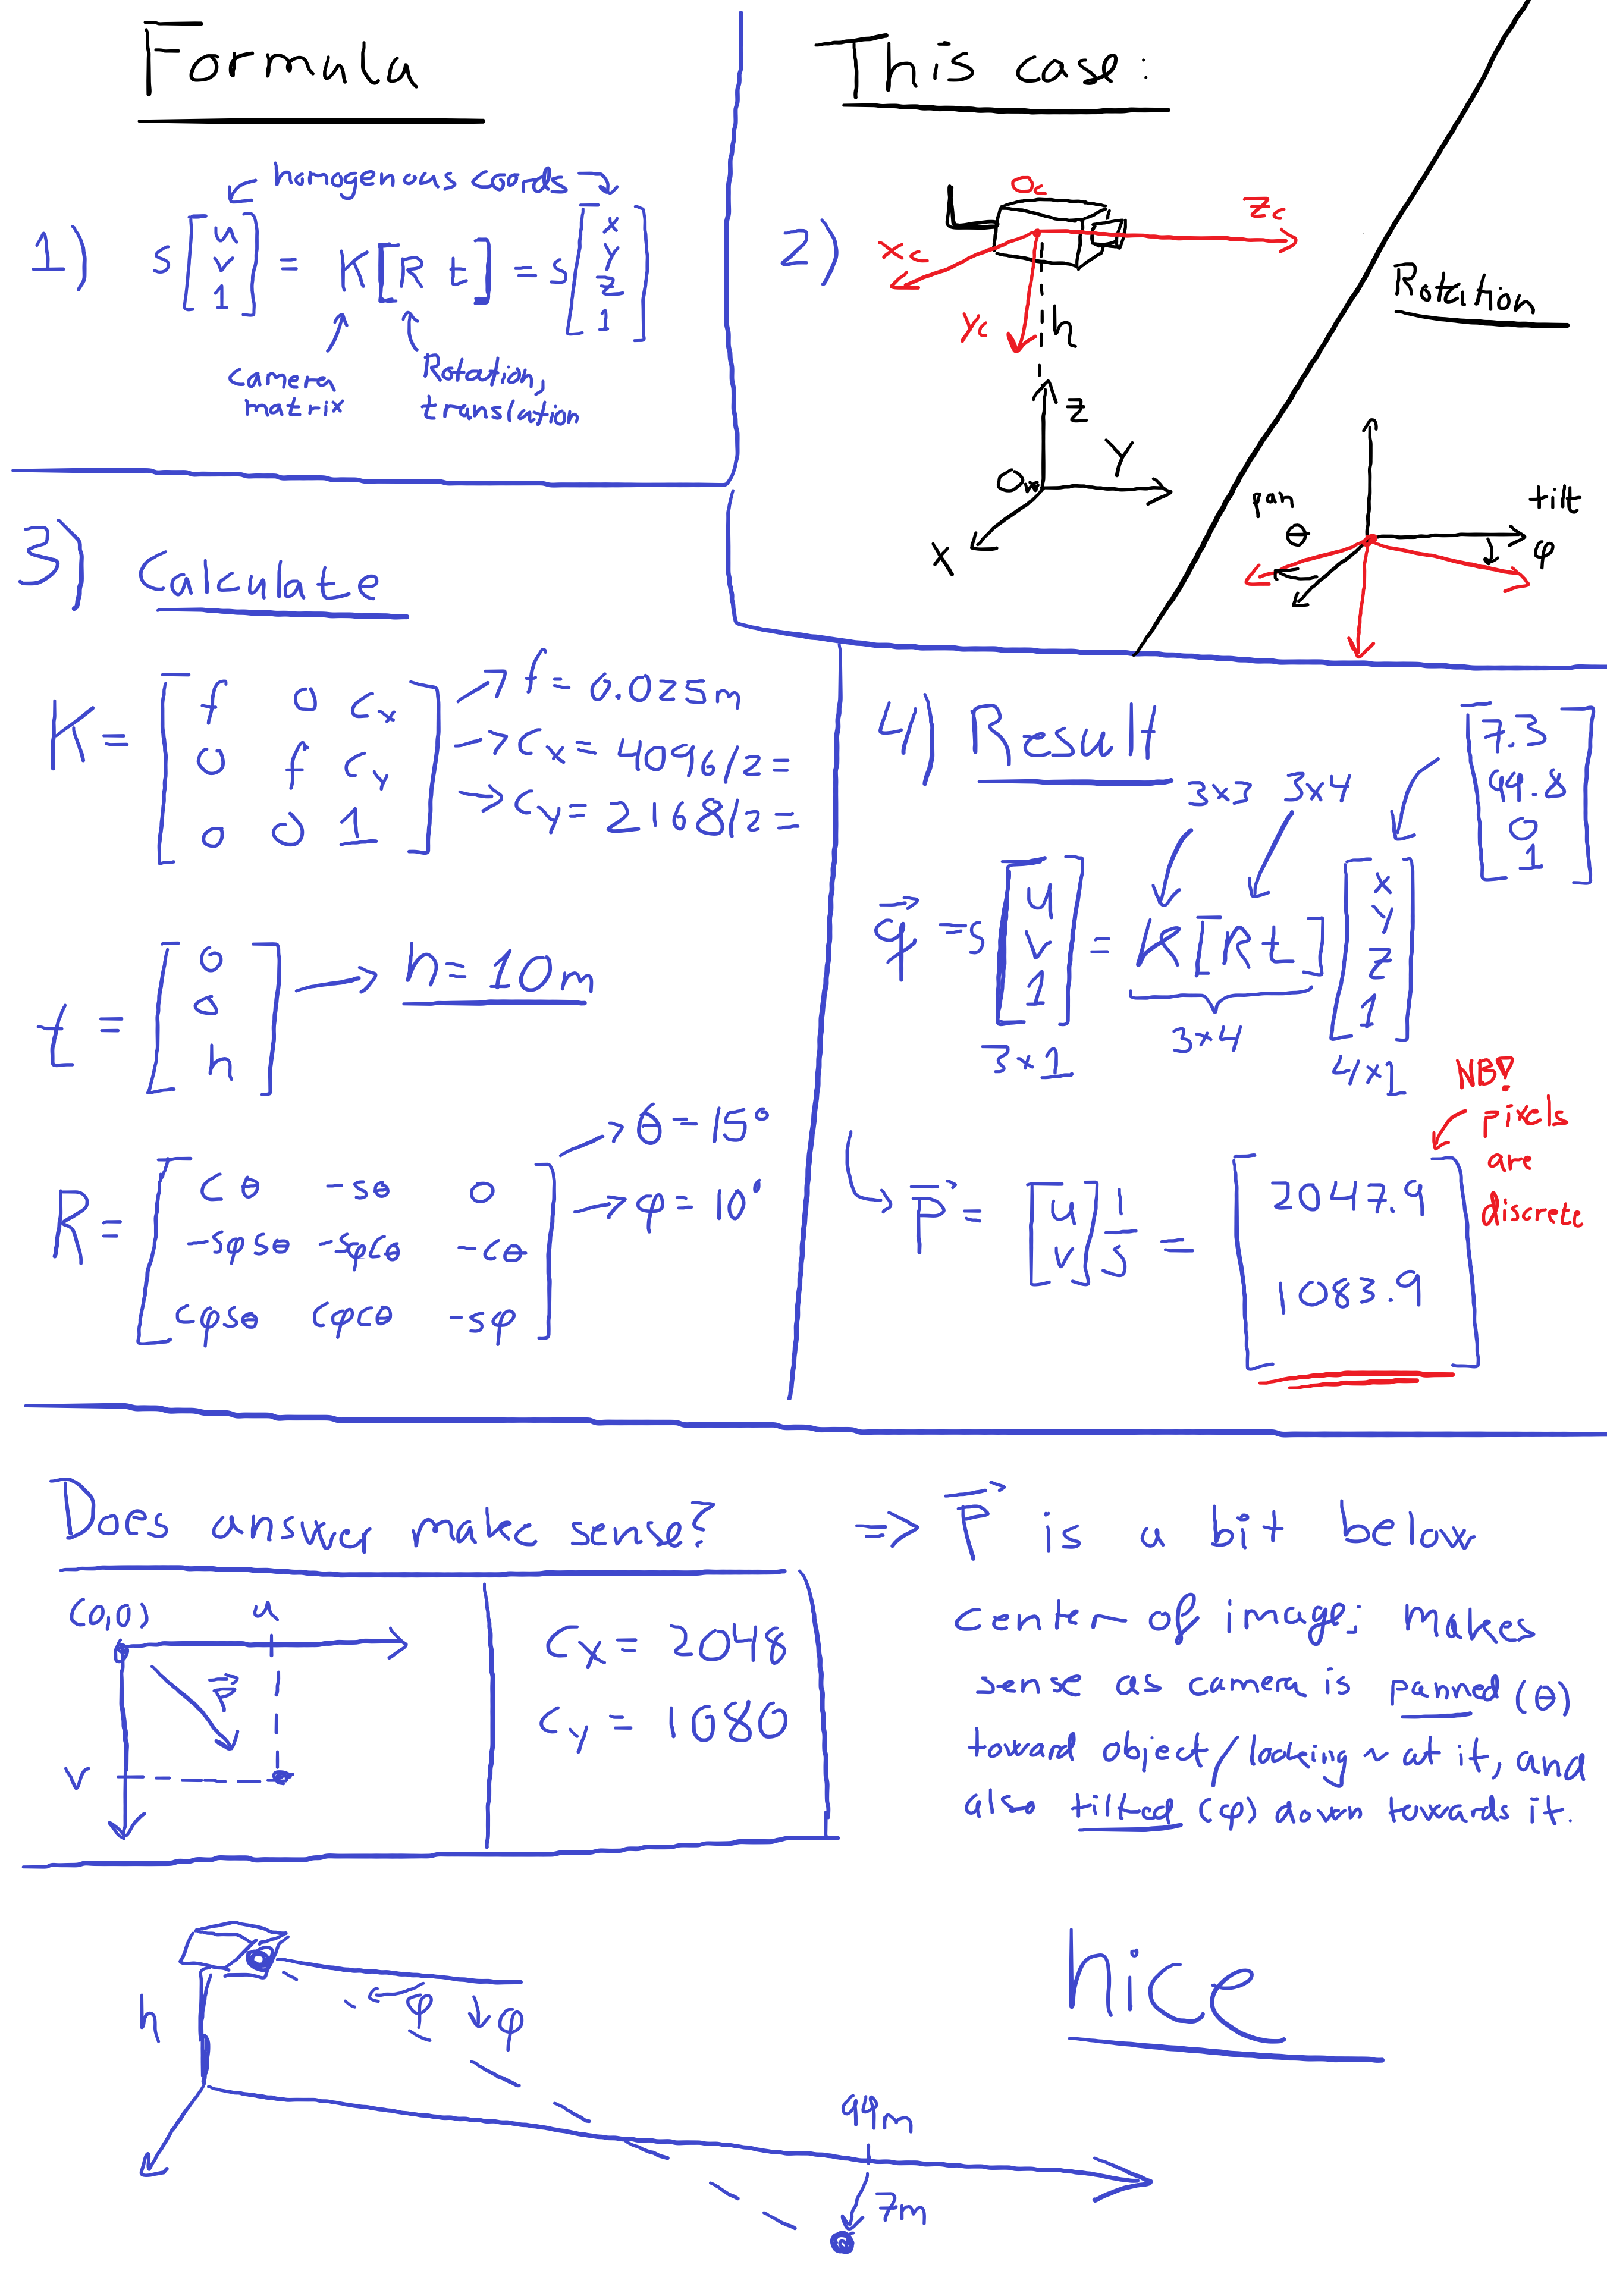 Formula
homogenous coords
1) s [u v 1] = K [R t] = s [x y z 1]
camera matrix
Rotation, translation
This case:
2)
Oc
Zc
Xc
Yc
h
Z
Y
Ow
X
Rotation
pan
θ
tilt
φ
3) Calculate
K = [f 0 Cx
0 f Cy
0 0 1]
→ f = 0.025m
→ Cx = 4096/2 =
→ Cy = 2168/2 =
t = [0
0
h]
→ h = 10m
R = [cθ -sθ 0
-sφsθ -sφcθ -cθ
cφsθ cφcθ -sφ]
→ θ = 15°
→ φ = 10°
4) Result
[7.3
99.8
0
1]
3×3 3×4
q = s [u v 1] = K [R t] [x y z 1]
3×1
3×4
4×1
NB!
pixels
are
discrete
P = [u v] 1/s = [2047.9
1083.9]
Does answer make sense?
(0,0)
u
P
v
Cx = 2048
Cy = 1080
=> P is a bit below
center of image; makes
sense as camera is panned (θ)
toward object/looking ~ at it, and
also tilted (φ) down towards it.
h
φ
φ
99m
7m
nice